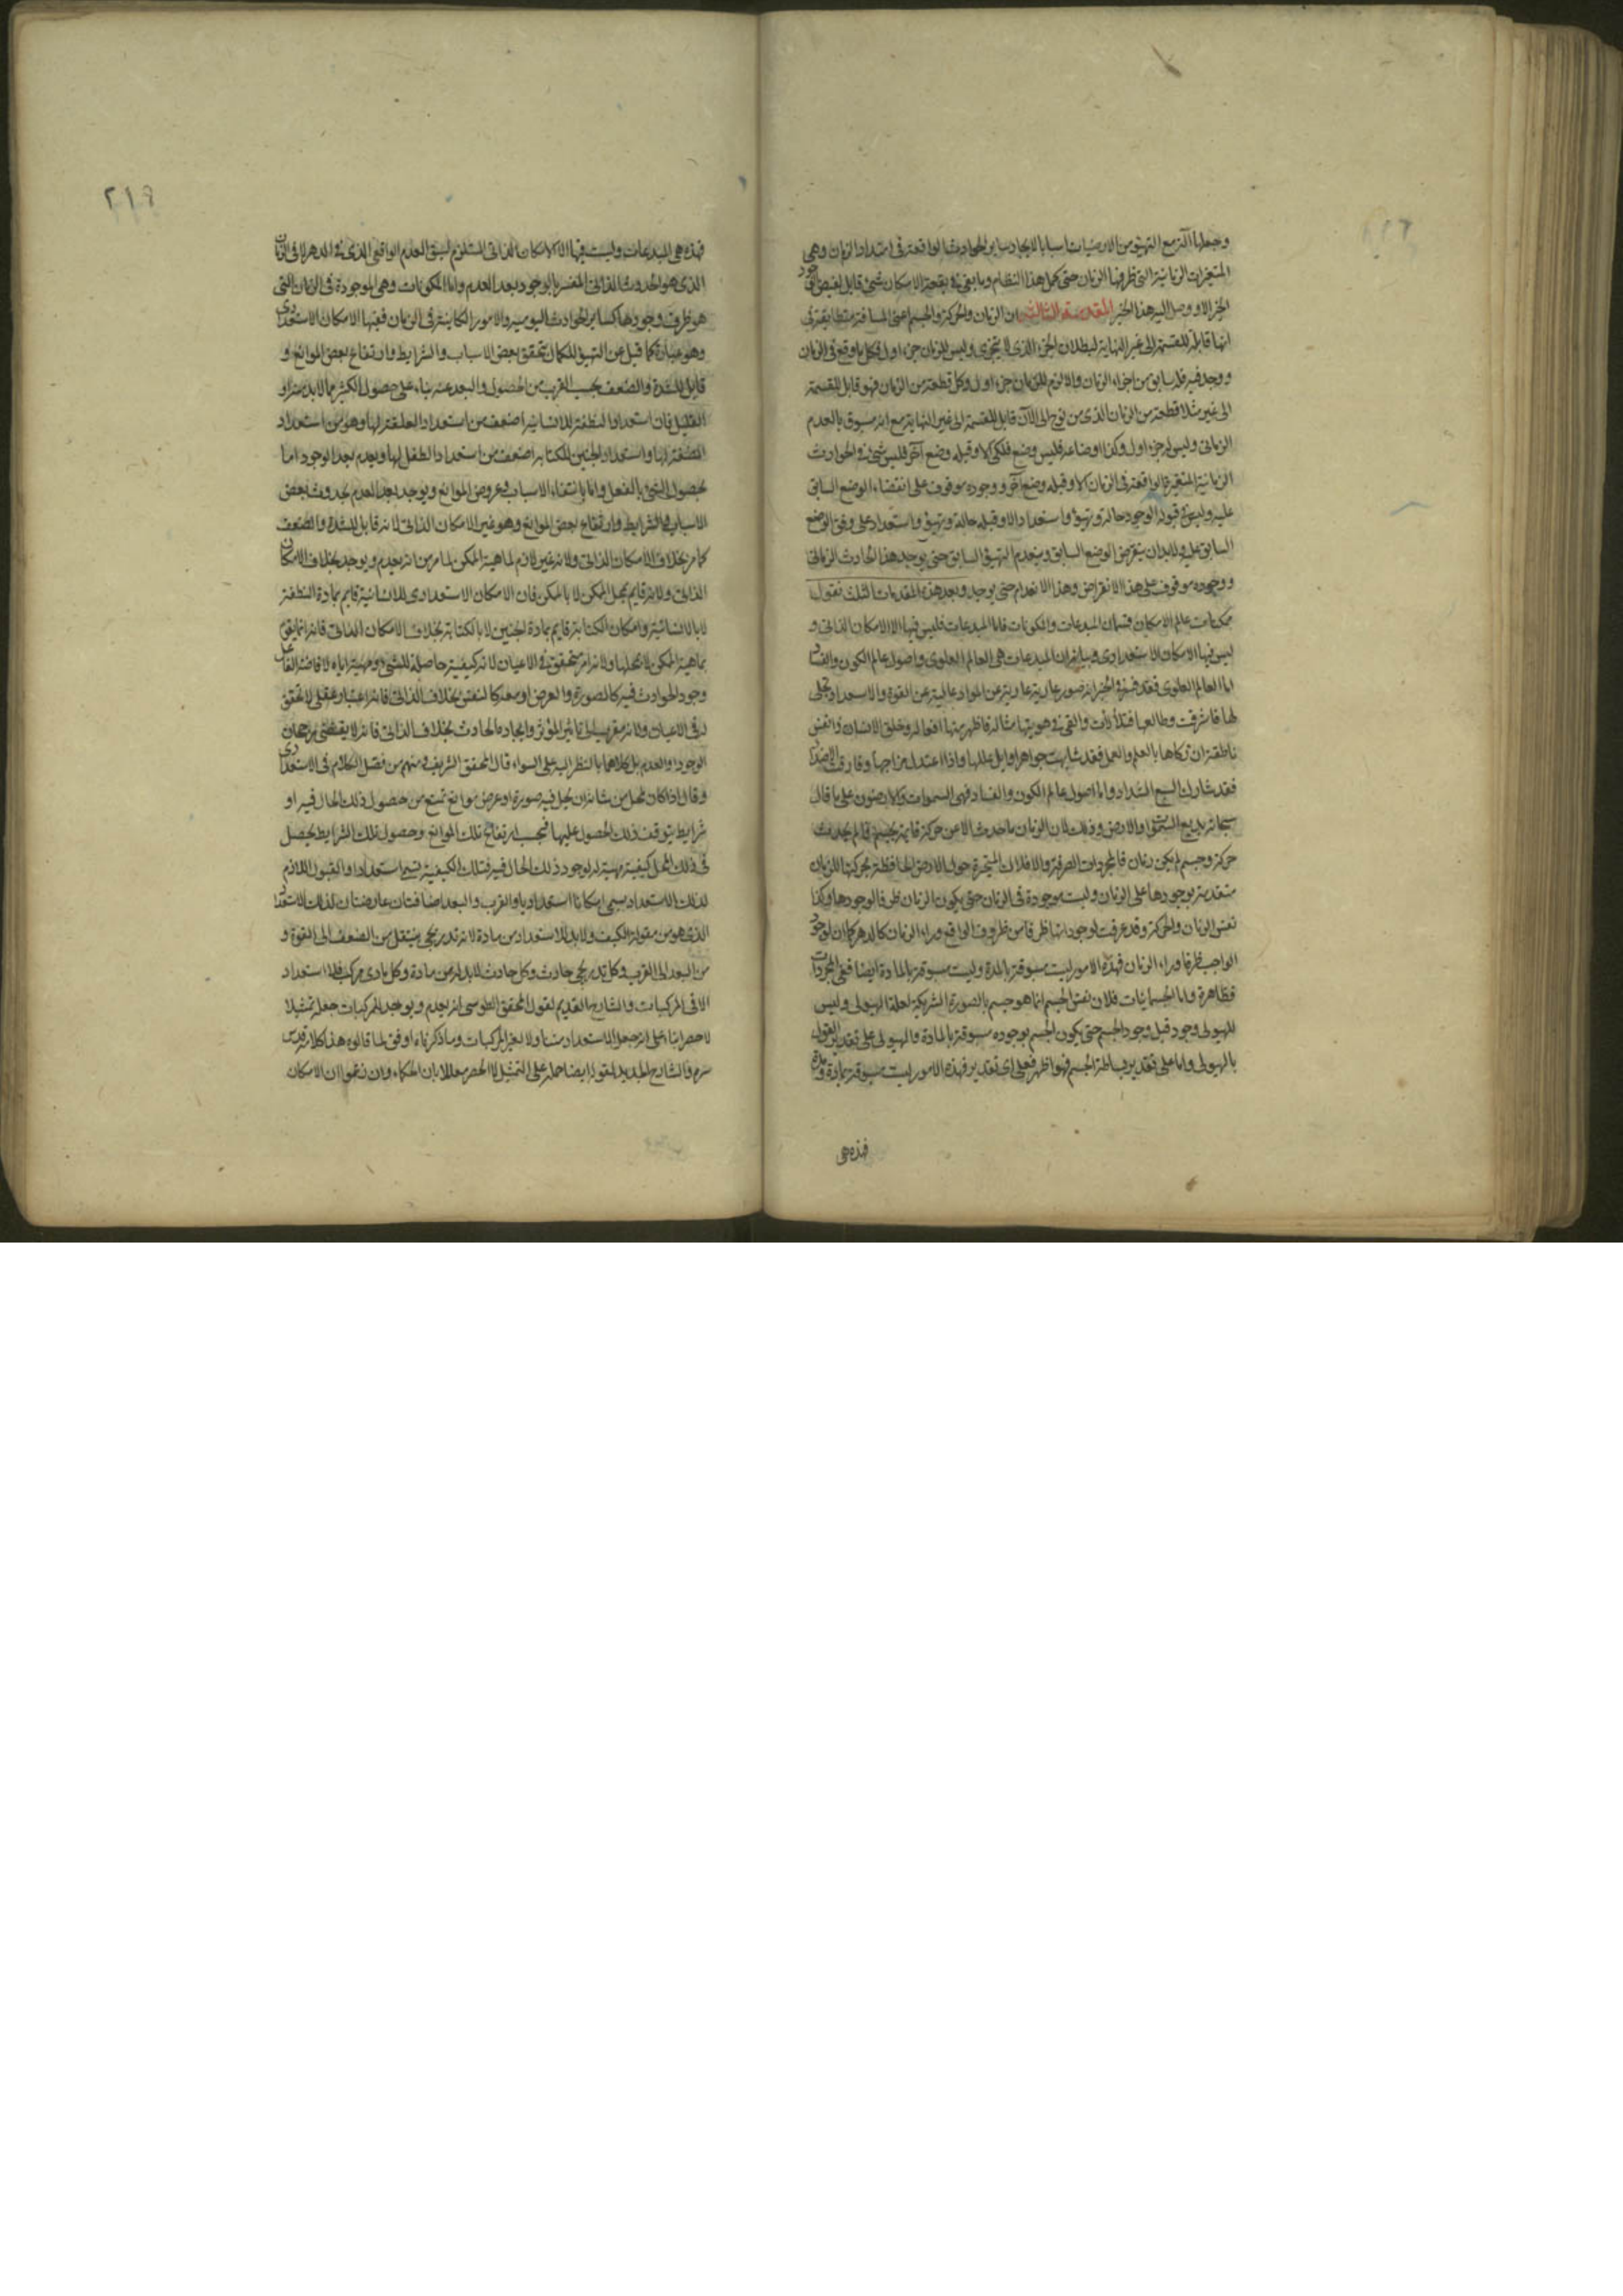 وجعلها آلة مع التهيؤ من الارضيات اسبابا لايجاد سائر الحوادث الواقعة فى امتداد الزمان وهى
المتغيرات الزمانية التى ظرفها الزمان حتى كمل هذا النظام وما بقى فى بقعة الامكان شئ قابل لفيض الوجود
الخير الا ووصل اليه هذا الخير المقدمة الثالثة ان الزمان والحركة والجسم اعنى المسافة متطابقة فى
انها قابلة للقسمة الى غير النهاية لبطلان الجزء الذى لا يتجزى وليس للزمان جزء اول فكل ما وقع فى الزمان
ووجد فيه فله سابق من اجزاء الزمان والا لزم للزمان جزء اول وكل قطعة من الزمان فهو قابل للقسمة
الى غير مثلا قطعة من الزمان الذى من نوح الى الآن قابل للقسمة الى غير النهاية مع انه مسبوق بالعدم
الزمانى وليس له جزء اول وكذا اوضاعه فليس وضع فلكى الا وقبله وضع آخر فليس شئ من الحوادث
الزمانية المتغيرة الواقعة فى الزمان الا وقبله وضع آخر ووجوده موقوف على انقضاء الوضع السابق
عليه وليس قبوله الوجود حالة وتهيؤ واستعداد الا وقبله حالة وتهيؤ واستعداد على وفق الوضع
السابق عليه ولابد ان ينقرض الوضع السابق وينعدم التهيؤ السابق حتى يوجد هذا الحادث الزمانى
ووجوده موقوف على هذا الانقراض وهذا الانعدام حتى يوجد وبعد هذه المقدمات الثلث نقول
ممكنات عالم الامكان قسمان المبدعات والمكونات فاما المبدعات فليس فيها الا الامكان الذاتى و
ليس فيها الامكان الاستعدادى وبيانه ان المبدعات هى العالم العلوى واصول عالم الكون والفساد
اما العالم العلوى فقد فسر فى الخبر انه صور عارية عن المواد عالية عن القوة والاستعداد تجلى
لها فاشرقت وطالعها فتلألأت والقى فى هويتها مثاله فاظهر منها افعاله وخلق الانسان ذا نفس
ناطقة ان زكاها بالعلم والعمل فقد شابهت جواهر اوايل عللها واذا اعتدل مزاجها وفارقت الاضداد
فقد شارك السبع الشداد واما اصول عالم الكون والفساد فهى السموات والارضون على ما قال
سبحانه بديع السموات والارض وذلك لان الزمان ما حدث الا عن حركة قايمة بجسم فما لم يحدث
حركة وجسم لم يكن زمان فالمجردات الصرفة والافلاك المتحركة حول الارض الحافظة بحركتها للزمان
متقدمة بوجودها على الزمان وليست موجودة فى الزمان حتى يكون الزمان ظرفا لوجودها وكذا
نفس الزمان والحركة وقد عرفت لوجوداتها ظرفا من ظروف الواقع وراء الزمان كالدهر كما ان لوجود
الواجب ظرفا وراء الزمان فهذه الامور ليست مسبوقة بالمدة وليست مسبوقة بالمادة ايضا ففى المجردات
فظاهرة واما الجسمانيات فلان نفس الجسم انما هو جسم بالصورة الشريكة لعلة الهيولى وليس
للهيولى وجود قبل وجود الجسم حتى يكون الجسم بوجوده مسبوقة بالمادة والهيولى على تقدير القول
بالهيولى واما على تقدير بساطة الجسم فهو اظهر فعلى اى تقدير فهذه الامور ليست مسبوقة بمادة ومدة
فهذه هى
٢١٩
فهذه هى المبدعات وليست فيها الا الامكان الذاتى المستلزم لسبق العدم الواقعى الذى فى الدهر لا فى الزمان
الذى هو الحدوث الذاتى المفسر بالوجود بعد العدم واما المكونات وهى الموجودة فى الزمان التى
هو ظرف وجودها كساير الحوادث اليومية والامور الكاينة فى الزمان ففيها الامكان الاستعدادى
وهو عبارة كما قيل عن التهيؤ للكمال بتحقق بعض الاسباب والشرايط وارتفاع بعض الموانع و
قابل للشدة والضعف بحسب القرب من الحصول والبعد عنه بناء على حصول الكثير مما لابد منه او
القليل فان استعداد النطفة للانسانية اضعف من استعداد العلقة لها وهو من استعداد
المضغة لها واستعداد الجنين للكتابة اضعف من استعداد الطفل لها ويعدم بعد الوجود اما
بحصول الشئ بالفعل واما بانتفاء الاسباب وعروض الموانع ويوجد بعد العدم بحدوث بعض
الاسباب والشرايط وارتفاع بعض الموانع وهو غير الامكان الذاتى لانه قابل للشدة والضعف
كما مر بخلاف الامكان الذاتى ولانه غير لازم لماهية الممكن لما مر من انه يعدم ويوجد بخلاف الامكان
الذاتى ولانه قايم بمحل الممكن لا بالممكن فان الامكان الاستعدادى للانسانية قايم بمادة النطفة
لا بالانسانية وامكان الكتابة قايم بمادة الجنين لا بالكتابة بخلاف الامكان الذاتى فانه انما يقوم
بماهية الممكن لا بمحلها ولانه امر متحقق فى الاعيان لانه كيفية حاصلة للشئ مهيئة اياه لافاضة الفاعل
وجود الحوادث فيه كالصورة والعرض او معه كالنفس بخلاف الذاتى فانه اعتبار عقلى لا تحقق
له فى الاعيان ولانه مقرب الى تاثير المؤثر وايجاده الحادث بخلاف الذاتى فانه لا يقتضى رجحان
الوجود او العدم بل كلاهما بالنظر اليه على السواء قال المحقق الشريف منهم من فصل الكلام فى الاستعدادى
وقال اذا كان محل من شانه ان يحل فيه صورة او عرض موانع تمنع من حصول ذلك الحال فيه او
شرايط يتوقف ذلك الحصول عليها فبحسب ارتفاع تلك الموانع وحصول تلك الشرايط يحصل
فى ذلك المحل كيفية مهيئة له لوجود ذلك الحال فيه فتلك الكيفية تسمى استعدادا والقبول اللازم
لذلك الاستعداد يسمى امكانا استعداديا والقرب والبعد اضافتان عارضتان لذلك الاستعداد
الذى هو من مقولة الكيف ولابد للاستعداد من مادة لانه تدريجى ينتقل من الضعف الى القوة و
من البعد الى القرب وكل تدريجى حادث وكل حادث لابد له من مادة وكل مادى مركب فلا استعداد
الا فى المركبات والشارح القديم لقول المحقق الطوسى انه يعدم ويوجد للمركبات جعله تمثيلا
لا حصرا بناء على انه جعل الاستعداد متناولا لغير المركبات وما ذكرناه اوفق لما قالوه هذا كلامه قدس
سره والشارح الجديد لقوله ايضا حمله على التمثيل لا الحصر معللا بان الحكماء وان زعموا ان الامكان